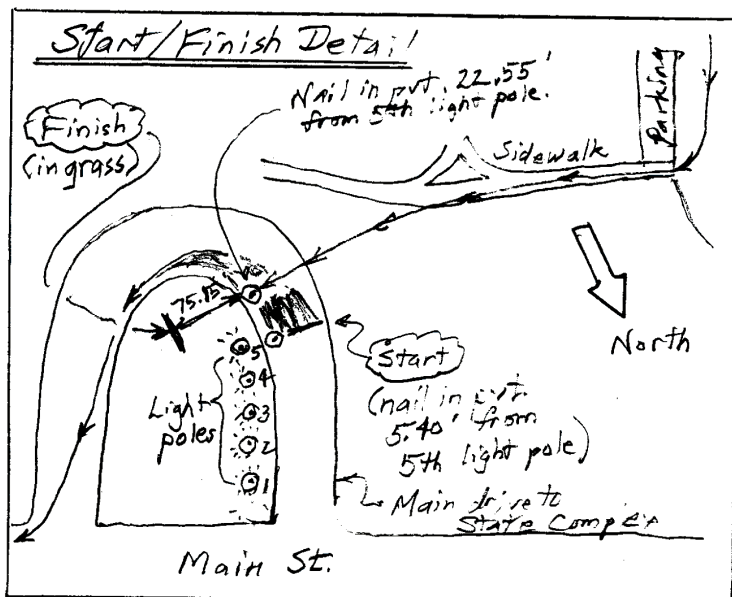 Start/Finish Detail
Nail in pvt. 22.55'
from 5th light pole.
Finish
(in grass)
Parking
Sidewalk
75.85'
North
Start
(nail in pvt.
5.40' from
5th light pole)
5
4
3
2
1
Light
poles
Main drive to
State Complex
Main St.